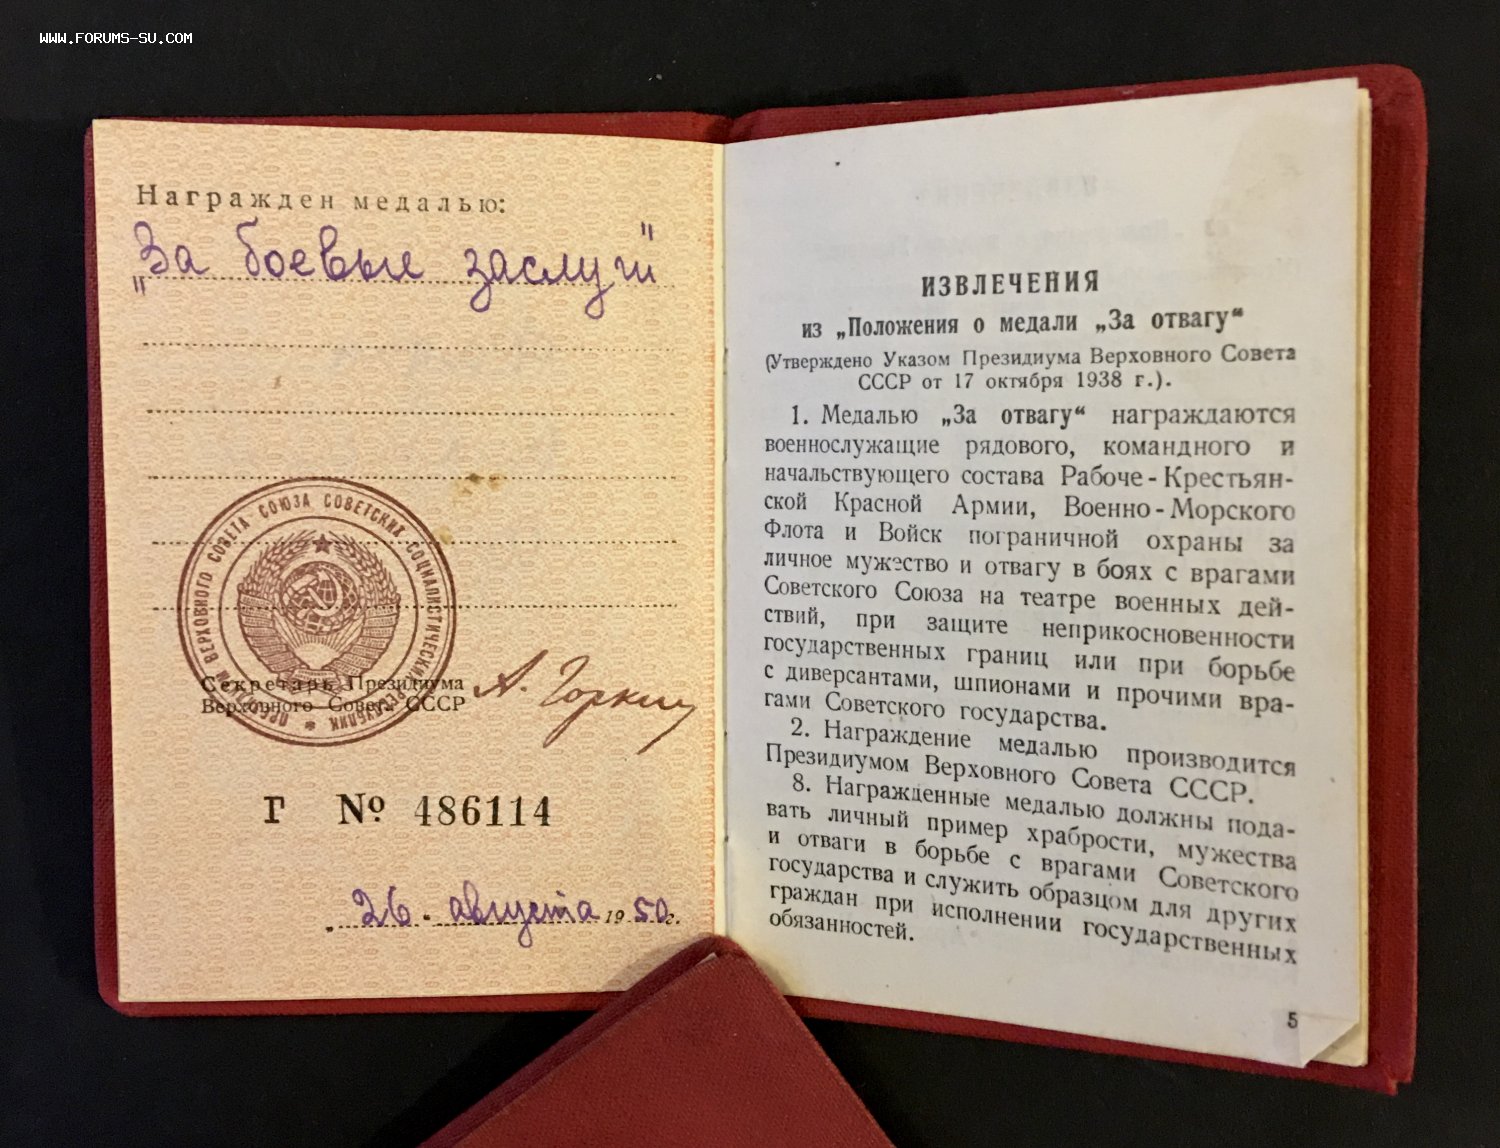 WWW.FORUMS-SU.COM
Награжден медалью:
„За боевые заслуги"
ПРЕЗИДИУМ ВЕРХОВНОГО СОВЕТА СОЮЗА СОВЕТСКИХ СОЦИАЛИСТИЧЕСКИХ РЕСПУБЛИК *
Секретарь Президиума
Верховного Совета СССР
А. Горкин
Г № 486114
26. августа 1950 г.
ИЗВЛЕЧЕНИЯ
из „Положения о медали „За отвагу“
(Утверждено Указом Президиума Верховного Совета
СССР от 17 октября 1938 г.).
1. Медалью „За отвагу“ награждаются
военнослужащие рядового, командного и
начальствующего состава Рабоче-Крестьян-
ской Красной Армии, Военно-Морского
Флота и Войск пограничной охраны за
личное мужество и отвагу в боях с врагами
Советского Союза на театре военных дей-
ствий, при защите неприкосновенности
государственных границ или при борьбе
с диверсантами, шпионами и прочими вра-
гами Советского государства.
2. Награждение медалью производится
Президиумом Верховного Совета СССР.
8. Награжденные медалью должны пода-
вать личный пример храбрости, мужества
и отваги в борьбе с врагами Советского
государства и служить образцом для других
граждан при исполнении государственных
обязанностей.
5